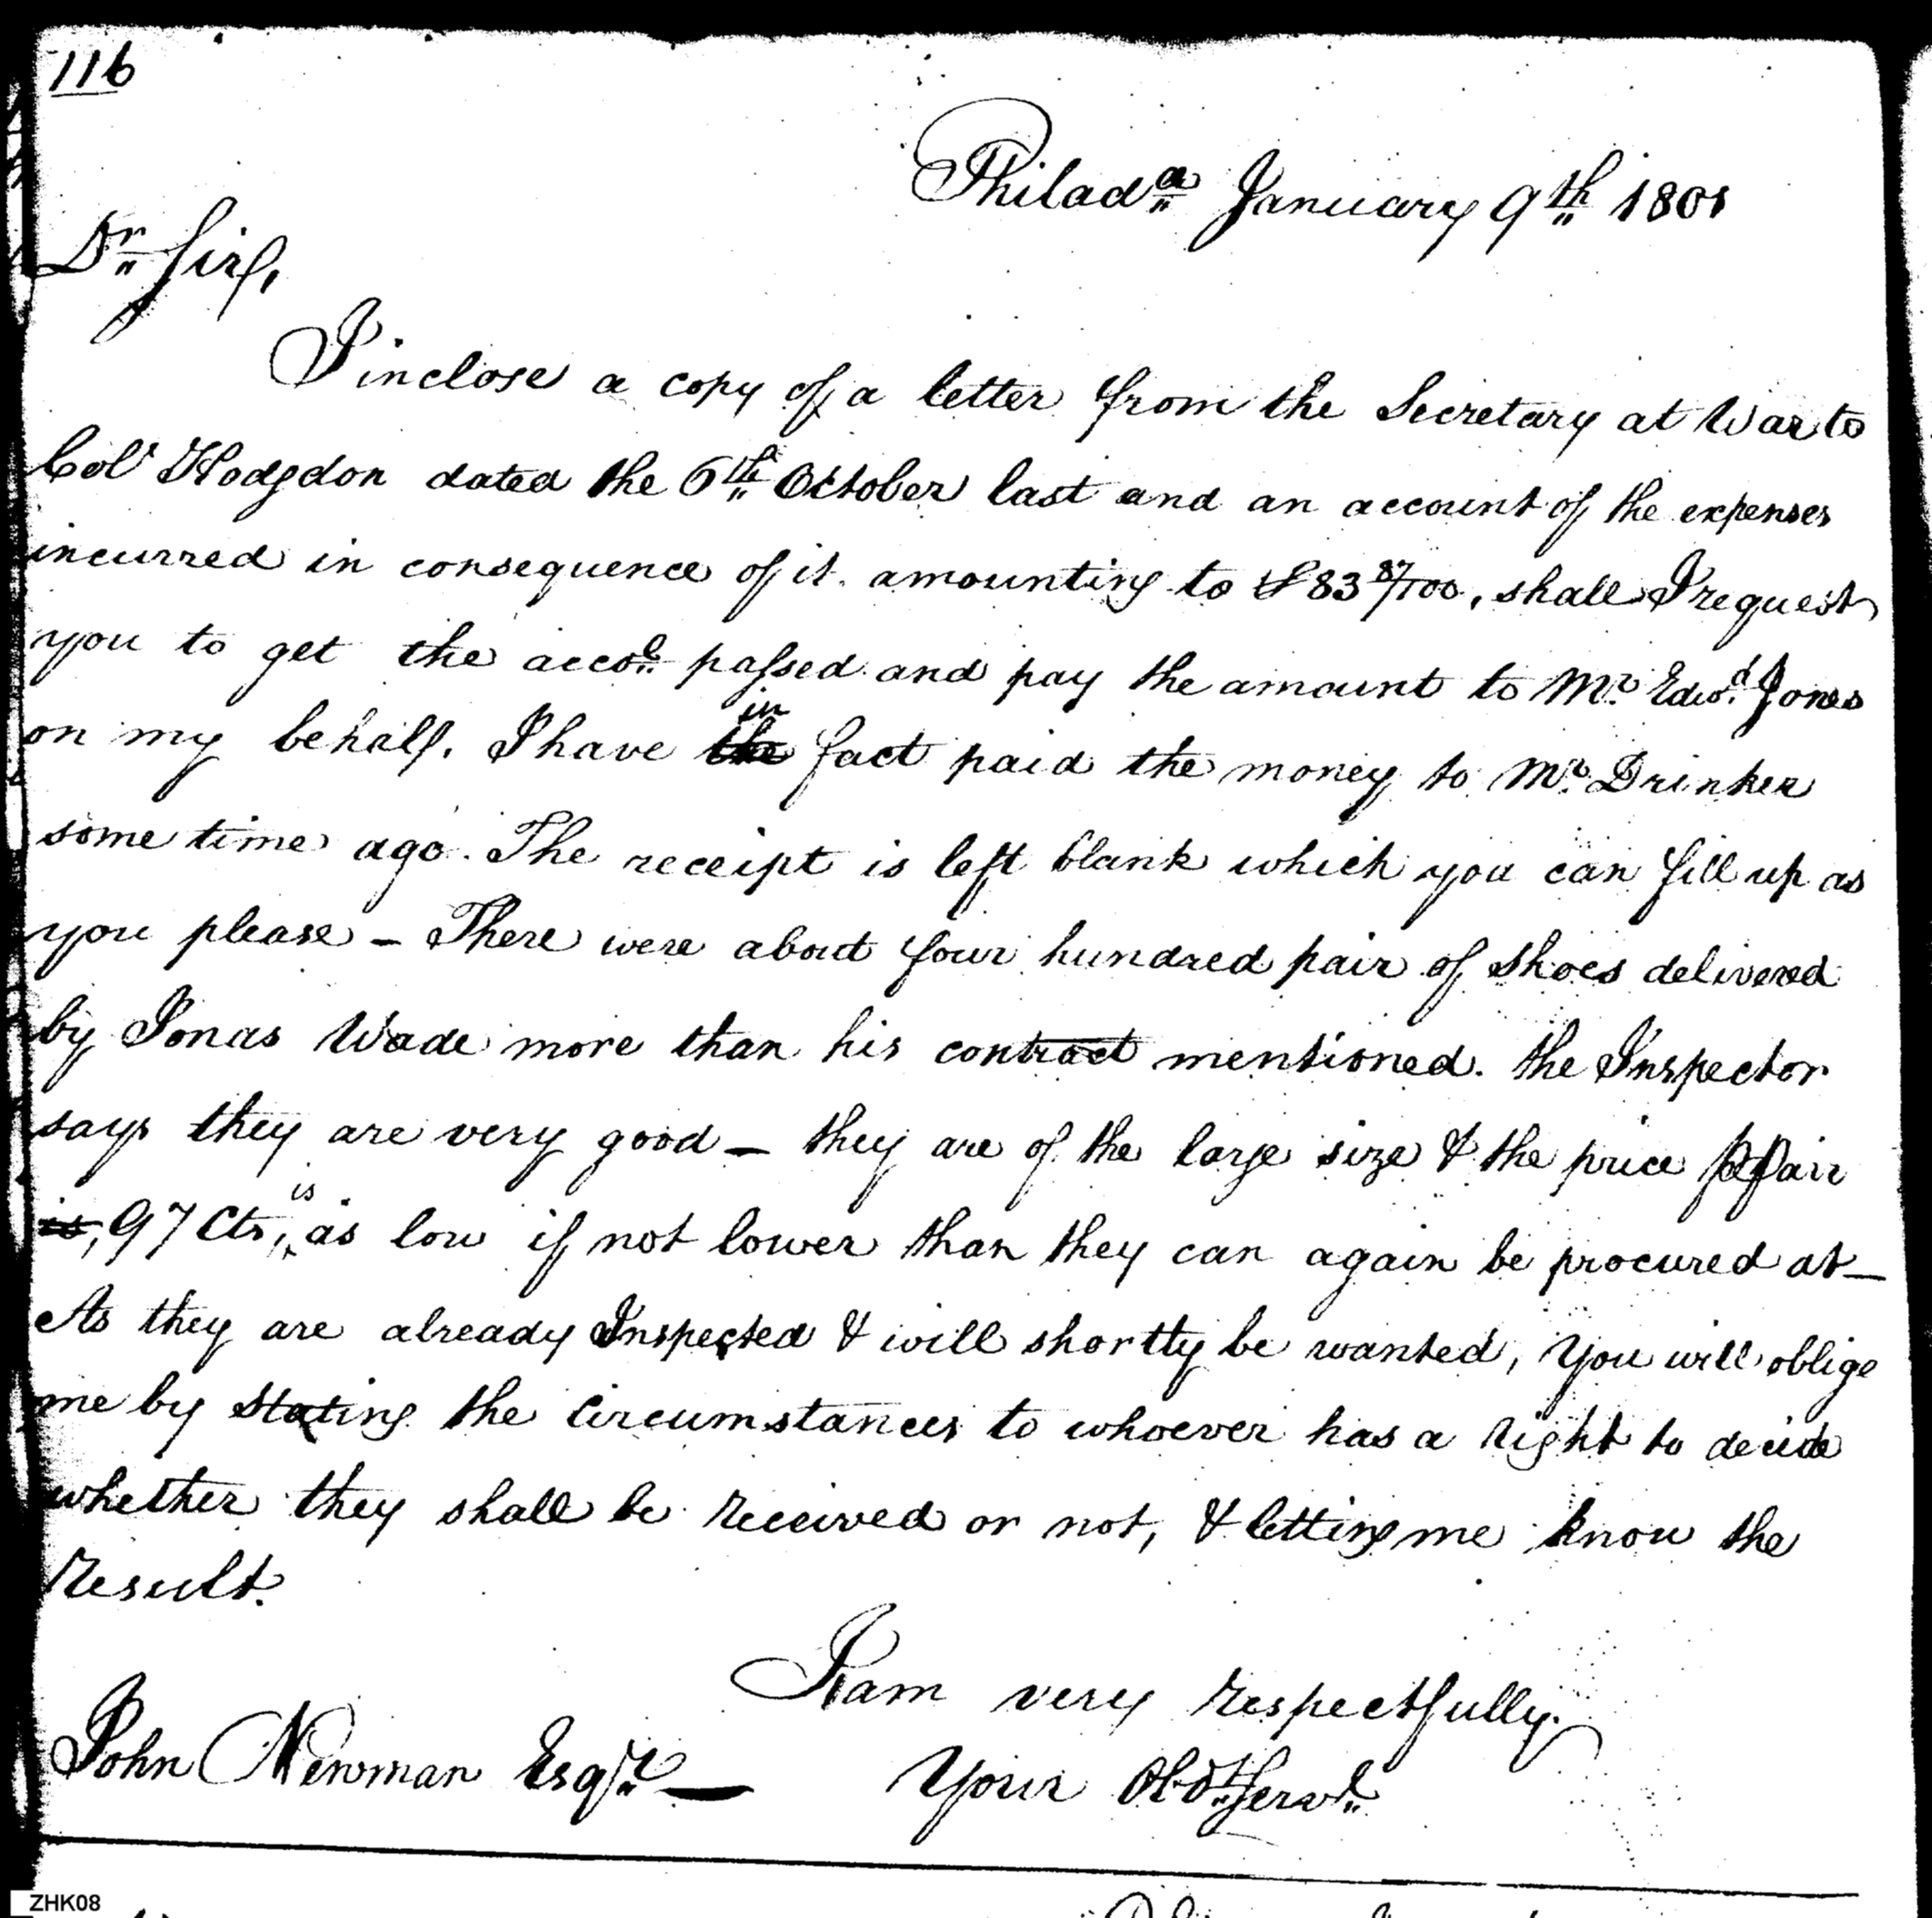 116
Philad.a January 9th 1801
Dr Sir,
I inclose a copy of a letter from the Secretary at War to
Col Hodgdon dated the 6th October last and an account of the expenses
incurred in consequence of it amounting to $83 87/100, shall I request
you to get the accot passed and pay the amount to Mr. Edwd. Jones
on my behalf. I have the in fact paid the money to Mr. Drinker
some time ago. The receipt is left blank which you can fill up as
you please – There were about four hundred pair of shoes delivered
by Jonas Wade more than his contract mentioned. the Inspector
says they are very good – they are of the large size & the price p pair
is, 97 Cts, is as low if not lower than they can again be procured at –
As they are already Inspected & will shortly be wanted, you will oblige
me by stating the Circumstances to whoever has a right to decide
whether they shall be received or not, & letting me know the
result.
I am very respectfully.
John Newman Esqr. – Your Obdt Servt
ZHK08